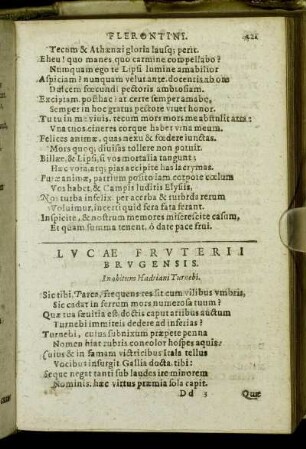 FLERONTINI. 421
Tecum & Athenæi gloria lausq; perit.
Eheu! quo manes, quo carmine compellabo?
Numquam ego te Lipsi lumine amabilior
Aspiciam? nunquam velut ante docentis ab ore
Dulcem fœcundi pectoris ambrosiam.
Excipiam posthac? at certe semper amabo,
Semper in hoc gratus pectore viuet honor.
Tu tu in me viuis, tecum mors mors me abstulit atra:
Vna tuos cineres corque habet vrna meum.
Felices animæ, quas nexu & fœdere iunctas.
Mors quoq; diuisas tollere non potuit.
Billæe, & Lipsi, si vos mortalia tangunt;
Hæc vota, atq; pias respicite has lacrymas.
Puræ animæ, patrium posito iam corpore cœlum
Vos habet, & Campis luditis Elysiis.
Nos turba infelix per acerba & turbida rerum
Voluimur, incerti quid sera fata ferant.
Inspicite, & nostrum memores miserescite casum,
Et quam summa tenent, ô date pace frui.
LVCAE FRVTERII
BRVGENSIS.
In obitum Hadriani Turnebi.
Sic tibi, Parce, frequens res sit cum vilibus vmbris,
Sic cadat in ferrum mors numerosa tuum?
Quæ tua sæuitia est doctis caput artibus auctum
Turnebi immiteis dedere ad inferias?
Turnebi, cuius subnixum præpete penna
Nomen hiat rubris concolor hospes aquis:
Cuius & in famam victricibus Itala tellus
Vocibus insurgit Gallia docta tibi:
Seque negat tanti sub laudes ire minorem
Nominis. hæc virtus præmia sola capit.
Dd 3 Quæ